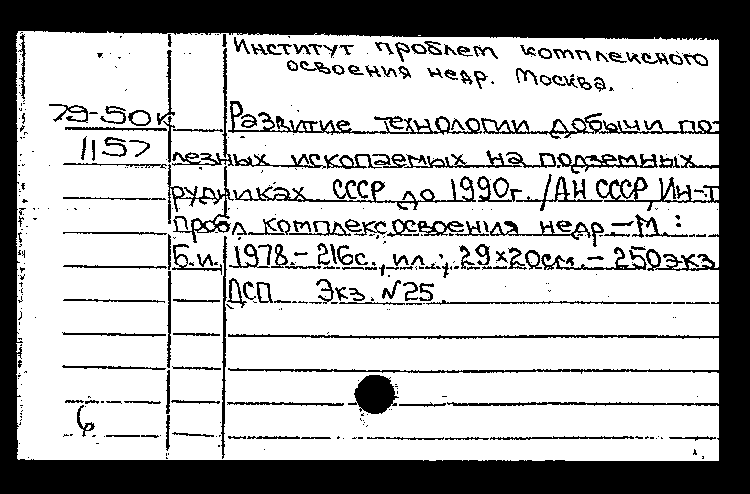 Институт проблем комплексного
освоения недр. Москва.
79-50к Развитие технологии добычи по-
1157 лезных ископаемых на подземных
рудниках СССР до 1990г. /АН СССР, Ин-т
пробл. комплекс. освоения недр.—М.:
Б.и., 1978.- 216с., ил.; 29×20см.- 250экз.
ДСП Экз. N25.
6